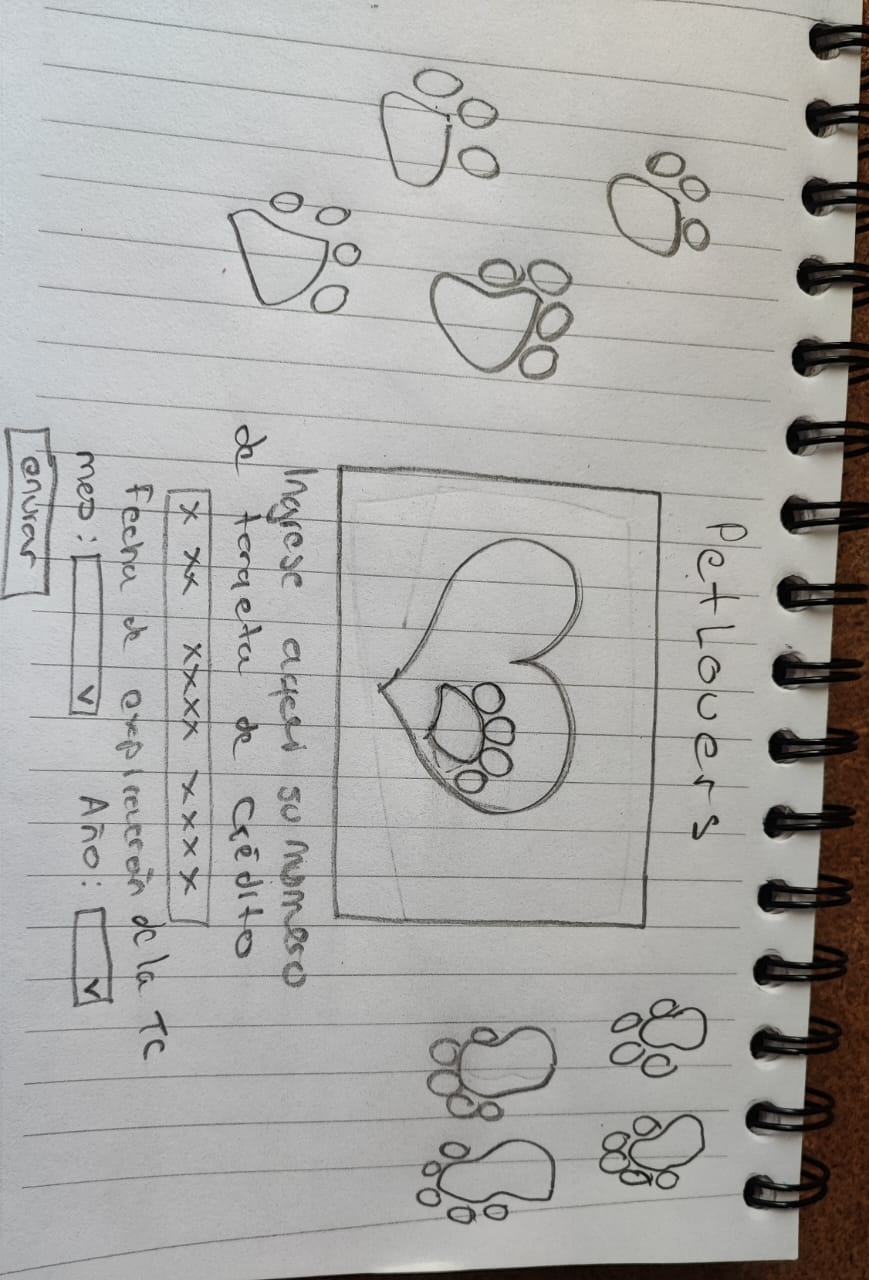 PetLovers
Ingrese aqui su numero
de tarjeta de Crédito
x xx xxxx xxxx
Fecha de expiración de la TC
mes: v Año: v
enviar